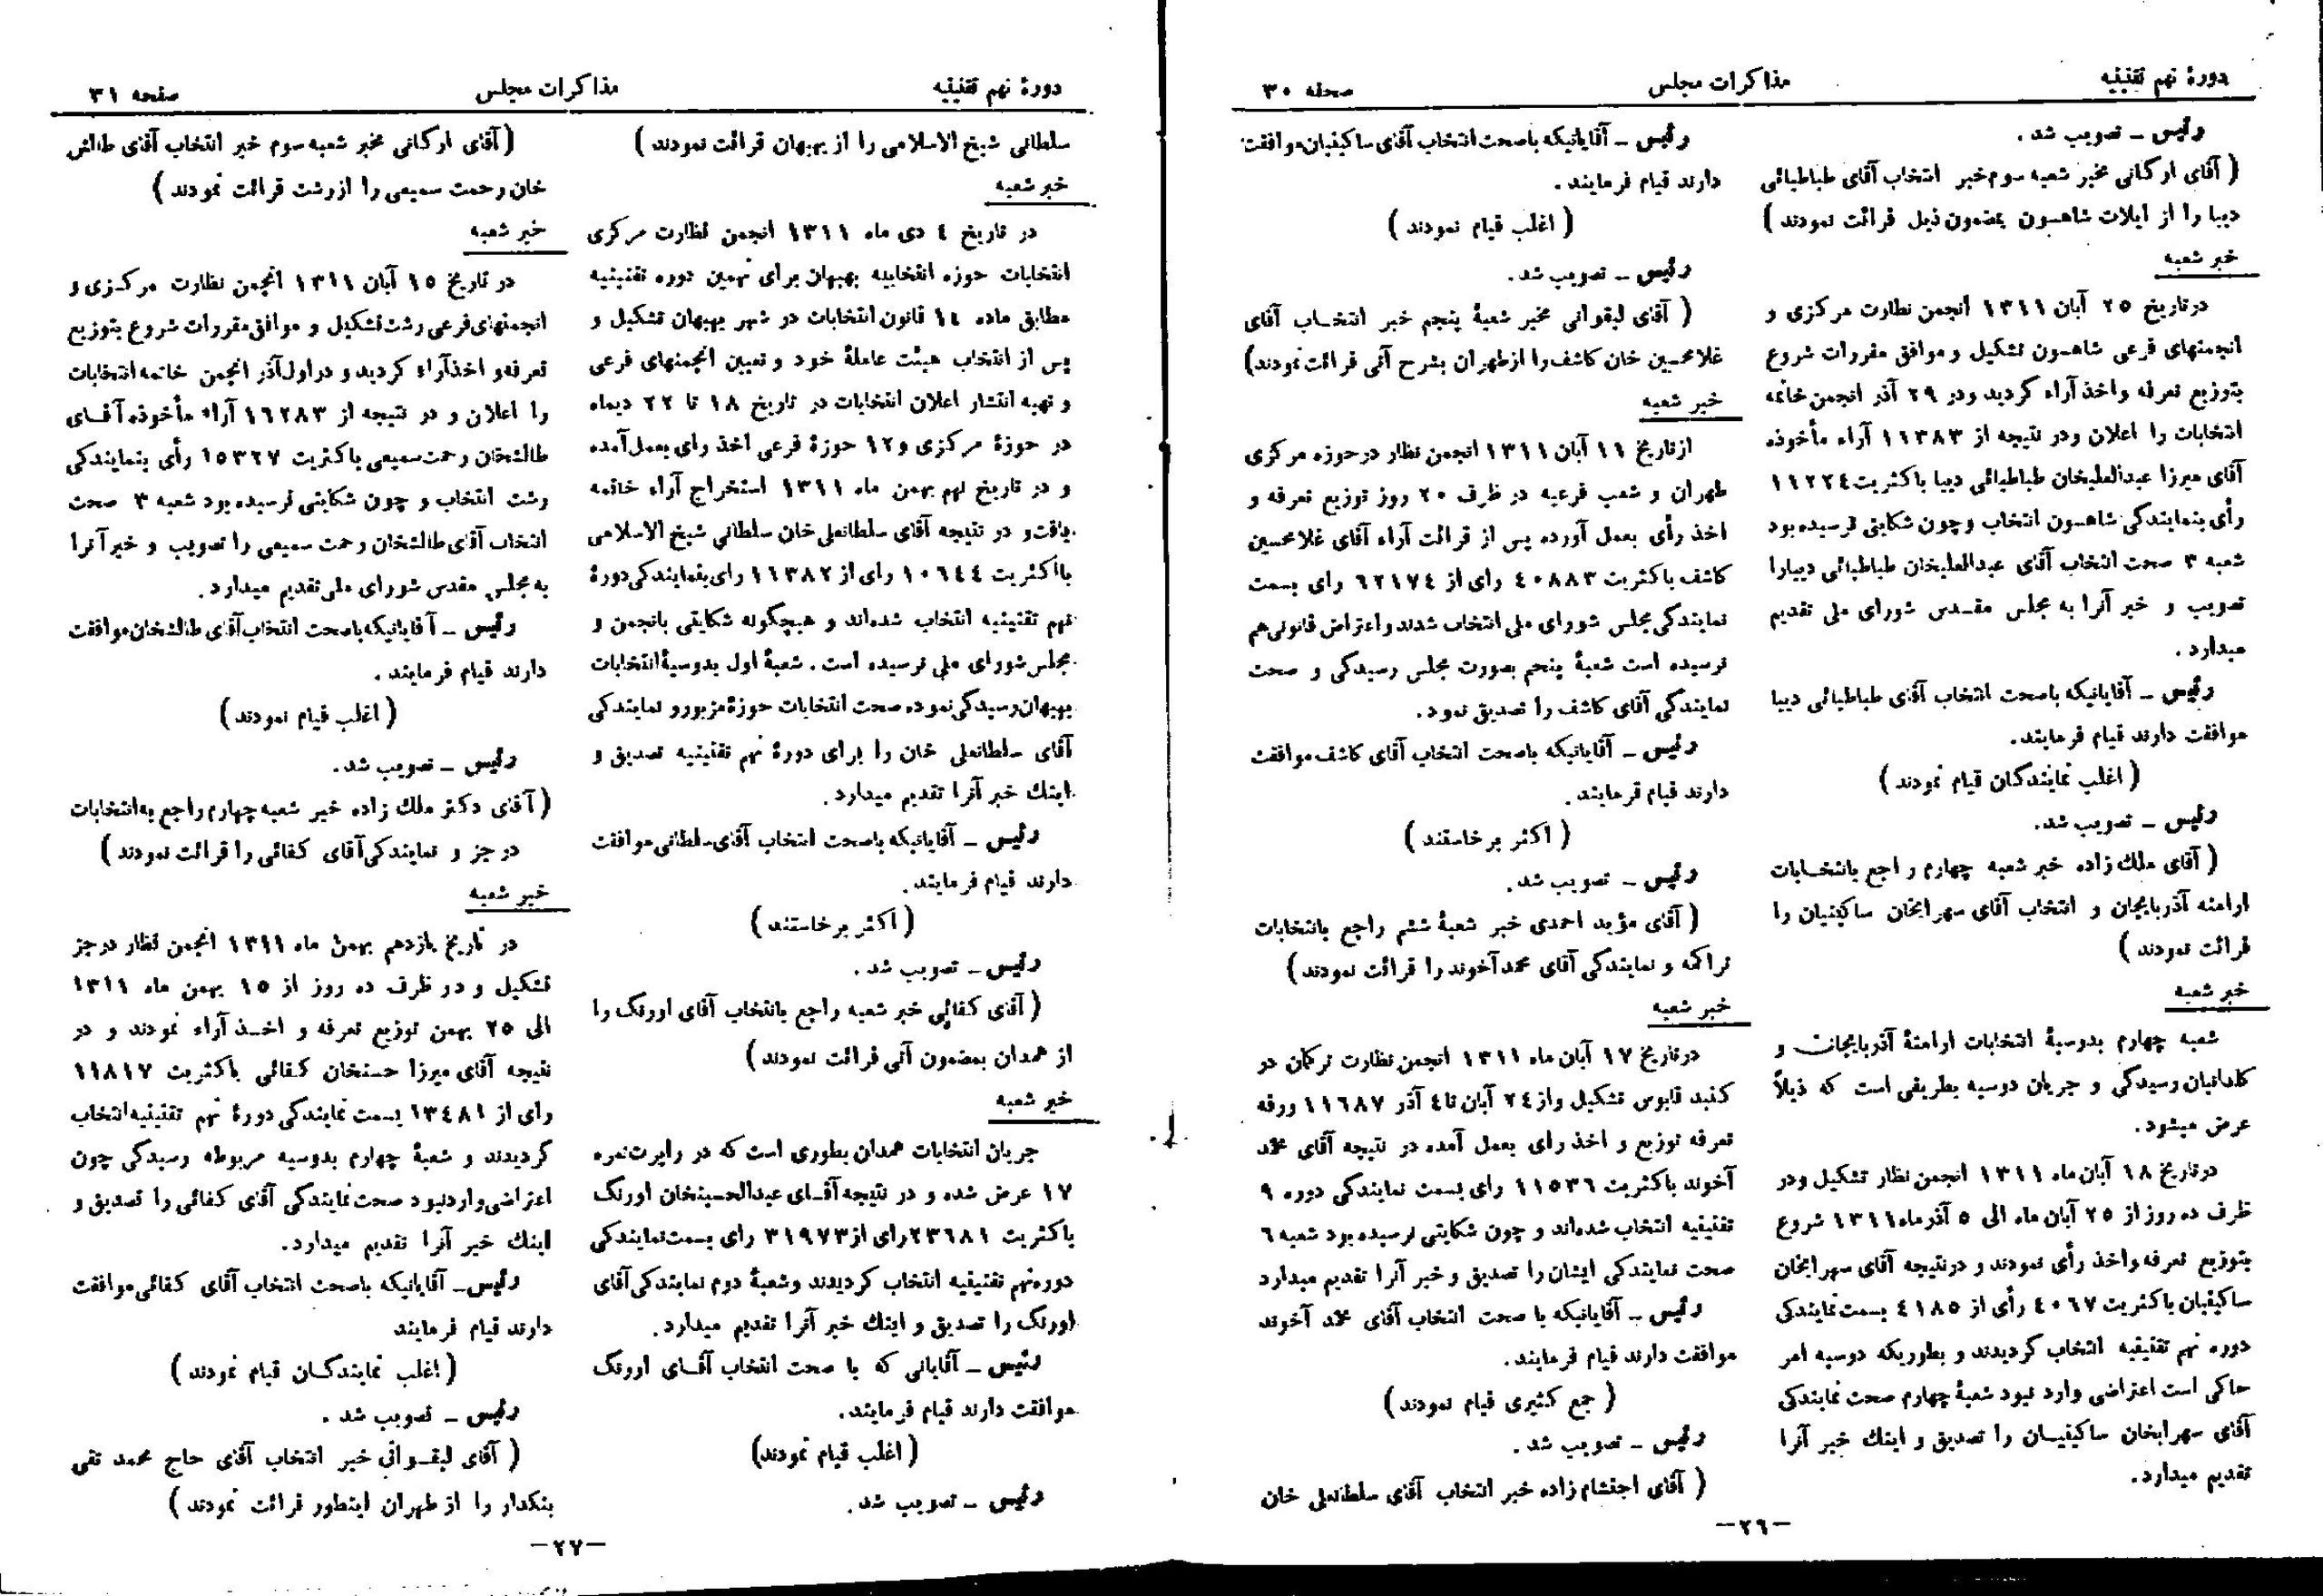 دورهٔ نهم تقنینیه
مذاکرات مجلس
صحفه ۳۰
رئیس ـ تصویب شد .
( آقای ارکانی مخبر شعبه سوم خبر انتخاب آقای طباطبائی
دیبا را از ایلات شاهسون بمضمون ذیل قرائت نمودند )
خبر شعبه
در تاریخ ۲۵ آبان ۱۳۱۱ انجمن نظارت مرکزی و
انجمنهای فرعی شاهسون تشکیل و موافق مقررات شروع
بتوزیع تعرفه واخذ آراء گردید ودر ۲۹ آذر انجمن خاتمه
انتخابات را اعلان ودر نتیجه از ۱۱۳۸۳ آراء مأخوذه
آقای میرزا عبدالعلیخان طباطبائی دیبا باکثریت ۱۱۲۲٤
رأی بنمایندگی شاهسون انتخاب وچون شکایتی نرسیده بود
شعبه ۳ صحت انتخاب آقای عبدالعلیخان طباطبائی دیبارا
تصویب و خبر آنرا به مجلس مقدس شورای ملی تقدیم
میدارد .
رئیس ـ آقایانیکه باصحت انتخاب آقای طباطبائی دیبا
موافقت دارند قیام فرمایند.
( اغلب نمایندگان قیام نمودند )
رئیس ـ تصویب شد.
( آقای ملك زاده خبر شعبه چهارم راجع بانتخابات
ارامنه آذربایجان و انتخاب آقای سهرابخان ساکینیان را
قرائت نمودند )
خبر شعبه
شعبه چهارم بدوسیهٔ انتخابات ارامنهٔ آذربایجان و
کلدانیان رسیدگی و جریان دوسیه بطریقی است که ذیلاً
عرض میشود.
درتاریخ ۱۸ آبان ماه ۱۳۱۱ انجمن نظار تشکیل ودر
ظرف ده روز از ۲۵ آبان ماه الی ۵ آذر ماه ۱۳۱۱ شروع
بتوزیع تعرفه واخذ رأی نمودند و درنتیجه آقای سهرابخان
ساکینیان باکثریت ٤۰٦۷ رأی از ٤۱۸۵ بسمت نمایندگی
دوره نهم تقنینیه انتخاب گردیدند و بطوریکه دوسیه امر
حاکی است اعتراضی وارد نبود شعبهٔ چهارم صحت نمایندگی
آقای سهرابخان ساکینیان را تصدیق و اینك خبر آنرا
تقدیم میدارد.
رئیس ـ آقایانیکه باصحت انتخاب آقای ساکینیان موافقت
دارند قیام فرمایند .
( اغلب قیام نمودند )
رئیس ـ تصویب شد.
( آقای لیقوانی مخبر شعبهٔ پنجم خبر انتخاب آقای
غلامحسین خان کاشف را ازطهران بشرح آتی قرائت نمودند)
خبر شعبه
ازتاریخ ۱۱ آبان ۱۳۱۱ انجمن نظار درحوزه مرکزی
طهران و شعب فرعیه در ظرف ۲۰ روز توزیع تعرفه و
اخذ رأی بعمل آورده پس از قرائت آراء آقای غلامحسین
کاشف باکثریت ٤۰۸۸۳ رای از ٦۲۱۷٤ رای بسمت
نمایندگی مجلس شورای ملی انتخاب شدند و اعتراض قانونی هم
نرسیده است شعبهٔ پنجم بصورت مجلس رسیدگی و صحت
نمایندگی آقای کاشف را تصدیق نمود.
رئیس ـ آقایانیکه باصحت انتخاب آقای کاشف موافقت
دارند قیام فرمایند .
( اکثر برخاستند )
رئیس ـ تصویب شد.
( آقای مؤید احمدی خبر شعبهٔ ششم راجع بانتخابات
تراکمه و نمایندگی آقای محمد آخوند را قرائت نمودند)
خبر شعبه
درتاریخ ۱۷ آبان ماه ۱۳۱۱ انجمن نظارت ترکمان در
گنبد قابوس تشکیل واز ۲٤ آبان تا ٤ آذر ۱۱٦۸۷ ورقه
تعرفه توزیع و اخذ رای بعمل آمده در نتیجه آقای محمد
آخوند باکثریت ۱۱۵۳٦ رای بسمت نمایندگی دوره ۹
تقنینیه انتخاب شده‌اند و چون شکایتی نرسیده بود شعبه ٦
صحت نمایندگی ایشان را تصدیق و خبر آنرا تقدیم میدارد
رئیس ـ آقایانیکه با صحت انتخاب آقای محمد آخوند
موافقت دارند قیام فرمایند.
( جمع کثیری قیام نمودند )
رئیس ـ تصویب شد .
( آقای احتشام زاده خبر انتخاب آقای سلطانعلی خان
ـ۲٦ـ
دورهٔ نهم تقنینیه
مذاکرات مجلس
صفحه ۳۱
سلطانی شیخ الاسلامی را از بهبهان قرائت نمودند )
خبر شعبه
در تاریخ ٤ دی ماه ۱۳۱۱ انجمن نظارت مرکزی
انتخابات حوزه انتخابیه بهبهان برای نهمین دوره تقنینیه
مطابق ماده ۱٤ قانون انتخابات در شهر بهبهان تشکیل و
پس از انتخاب هیئت عاملهٔ خود و تعیین انجمنهای فرعی
و تهیه انتشار اعلان انتخابات در تاریخ ۱۸ تا ۲۲ دیماه
در حوزهٔ مرکزی و ۱۲ حوزهٔ فرعی اخذ رای بعمل آمده
و در تاریخ نهم بهمن ماه ۱۳۱۱ استخراج آراء خاتمه
یافت و در نتیجه آقای سلطانعلی خان سلطانی شیخ الاسلامی
با اکثریت ۱۰٦٤٤ رای از ۱۱۳۸۲ رای بنمایندگی دورهٔ
نهم تقنینیه انتخاب شده‌اند و هیچگونه شکایتی بانجمن و
مجلس شورای ملی نرسیده است . شعبهٔ اول بدوسیهٔ انتخابات
بهبهان رسیدگی نموده صحت انتخابات حوزهٔ مزبور و نمایندگی
آقای سلطانعلی خان را برای دورهٔ نهم تقنینیه تصدیق و
اینك خبر آنرا تقدیم میدارد.
رئیس ـ آقایانیکه باصحت انتخاب آقای سلطانی موافقت
دارند قیام فرمایند.
( اکثر برخاستند )
رئیس ـ تصویب شد .
( آقای کفائی خبر شعبه راجع بانتخاب آقای اورنگ را
از همدان بمضمون آتی قرائت نمودند )
خبر شعبه
جریان انتخابات همدان بطوری است که در راپرت نمره
۱۷ عرض شده و در نتیجه آقای عبدالحسینخان اورنگ
باکثریت ۲۳٦۸۱ رای از ۳۱۹۷۳ رای بسمت نمایندگی
دوره نهم تقنینیه انتخاب گردیدند وشعبهٔ دوم نمایندگی آقای
اورنگ را تصدیق و اینك خبر آنرا تقدیم میدارد.
رئیس ـ آقایانی که با صحت انتخاب آقای اورنگ
موافقت دارند قیام فرمایند.
( اغلب قیام نمودند)
رئیس ـ تصویب شد.
( آقای ارکانی مخبر شعبه سوم خبر انتخاب آقای طالش
خان رحمت سمیعی را ازرشت قرائت نمودند )
خبر شعبه
در تاریخ ۱۵ آبان ۱۳۱۱ انجمن نظارت مرکزی و
انجمنهای فرعی رشت تشکیل و موافق مقررات شروع بتوزیع
تعرفه و اخذ آراء گردید و در اول آذر انجمن خاتمه انتخابات
را اعلان و در نتیجه از ۱٦۲۸۳ آراء مأخوذه آقای
طالشخان رحمت سمیعی باکثریت ۱۵۳۲۷ رأی بنمایندگی
رشت انتخاب و چون شکایتی نرسیده بود شعبه ۳ صحت
انتخاب آقای طالشخان رحمت سمیعی را تصویب و خبر آنرا
به مجلس مقدس شورای ملی تقدیم میدارد.
رئیس ـ آقایانیکه باصحت انتخاب آقای طالشخان موافقت
دارند قیام فرمایند .
( اغلب قیام نمودند )
رئیس ـ تصویب شد.
( آقای دکتر ملك زاده خبر شعبه چهارم راجع به انتخابات
درجز و نمایندگی آقای کفائی را قرائت نمودند )
خبر شعبه
در تاریخ یازدهم بهمن ماه ۱۳۱۱ انجمن نظار درجز
تشکیل و در ظرف ده روز از ۱۵ بهمن ماه ۱۳۱۱
الی ۲۵ بهمن توزیع تعرفه و اخذ آراء نمودند و در
نتیجه آقای میرزا حسنخان کفائی باکثریت ۱۱۸۱۷
رای از ۱۳٤۸۱ بسمت نمایندگی دورهٔ نهم تقنینیه انتخاب
گردیدند و شعبهٔ چهارم بدوسیه مربوطه رسیدگی چون
اعتراضی وارد نبود صحت نمایندگی آقای کفائی را تصدیق و
اینك خبر آنرا تقدیم میدارد.
رئیس ـ آقایانیکه باصحت انتخاب آقای کفائی موافقت
دارند قیام فرمایند
( اغلب نمایندگان قیام نمودند )
رئیس ـ تصویب شد .
( آقای لیقوانی خبر انتخاب آقای حاج محمد تقی
بنکدار را از طهران اینطور قرائت نمودند )
ـ۲۷ـ